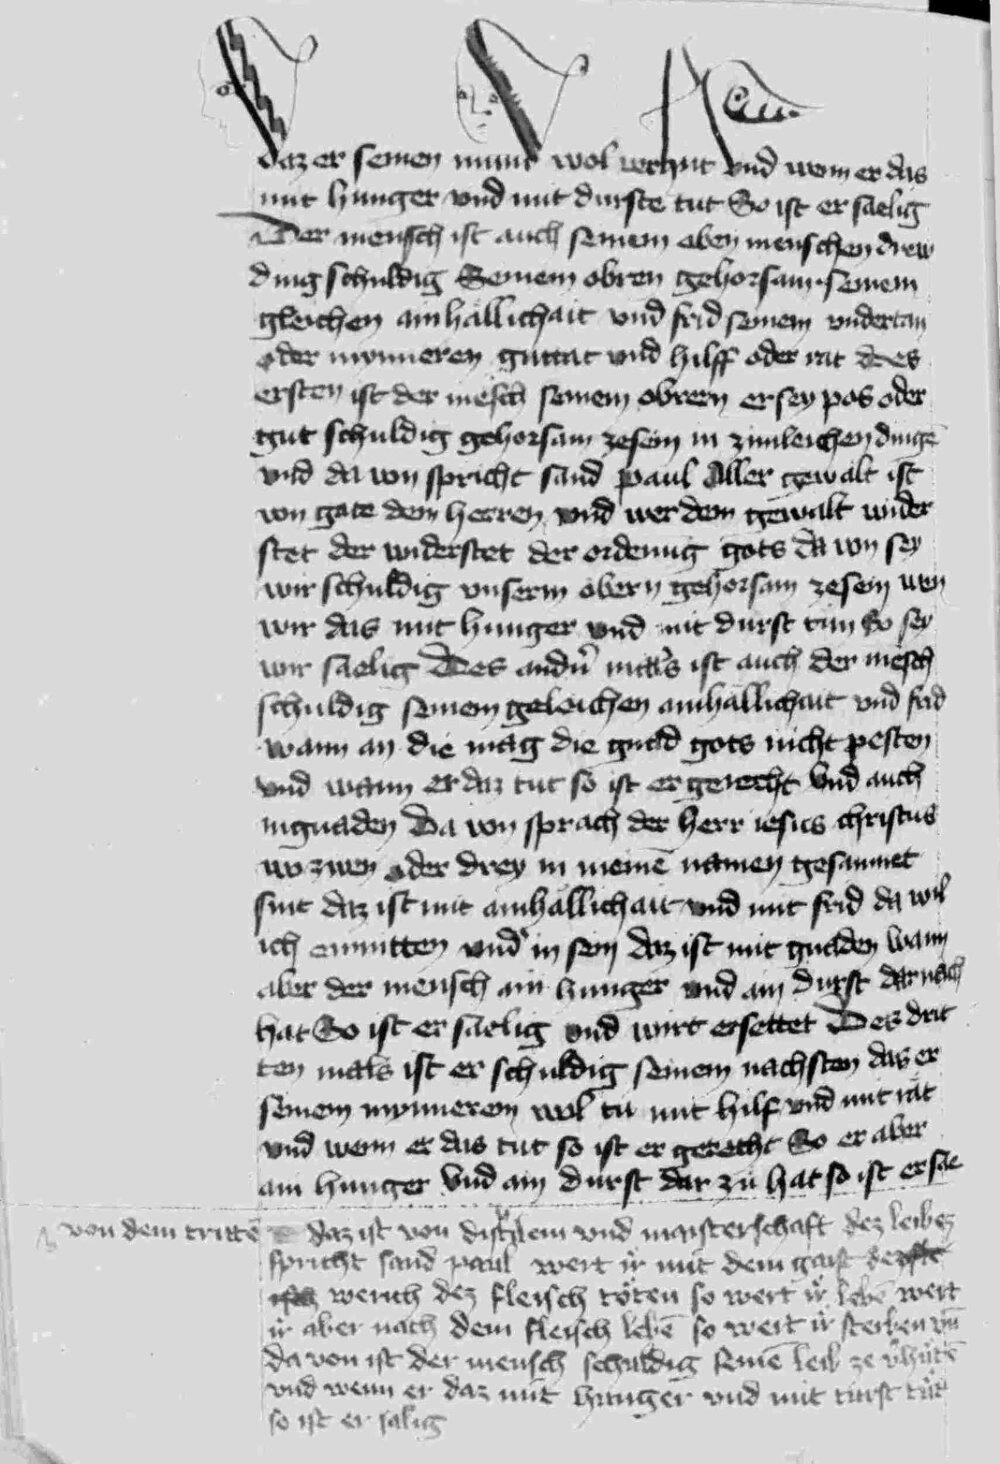 daz er seinen munt wol verhut vnd wenn er das
mit hunger vnd mit durste tut So ist er saelig
Der mensch ist auch seinem eben menschen drew
ding schuldig Seinem obren gehorsam seinem
gleichen ainhällichait vnd frid seinem vndertan
oder mynneren guttat vnd hilff oder rat Des
ersten ist der mēsch seinem obrern er sey pos oder
gut schuldig gehorsam ze sein in zimleichen dingē
vnd da von spricht sand paul Aller gewalt ist
von gote dem herren vnd wer dem gewalt wider
stet der widerstet der ordenūg gots da von sey
wir schuldig vnserm obern gehorsam ze sein wen
wir das mit hunger vnd mit durst tun So sey
wir saelig Des andn̄ mals ist auch der mēsch
schuldig seinem geleichen ainhällichait vnd frid
wann an die mag die gnad gots nicht pesten
vnd wann er daz tut so ist er gerecht vnd auch
in gnaden Da von sprach der herr iesus christus
wo zwen oder drey in meinē namen gesamnet
sint daz ist mit ainhällichait vnd mit frid da wil
ich enmitten vnd in sein daz ist mit gnaden wann
aber der mensch ain hunger vnd ain durst dar nach
hat So ist er saelig vnd wirt ersettet Des drit
ten mals ist er schuldig seinem nachsten das er
seinem mynnerem wol tu mit hilf vnd mit rat
vnd wenn er das tut so ist er gerecht So er aber
ain hunger vnd ain durst dar zu hat so ist er sae
von dem trittē daz ist von disciplein vnd maisterschaft dez leibez
spricht sand paul wert ir mit dem gaist
werich dez fleisch töten so wert ir lebē wert
ir aber nach dem fleisch lebē so wert ir sterben vn̄
da von ist der mensch schuldig seinē leib ze v̄hütē
vnd wenn er daz mit hunger vnd mit turst tut
so ist er salig